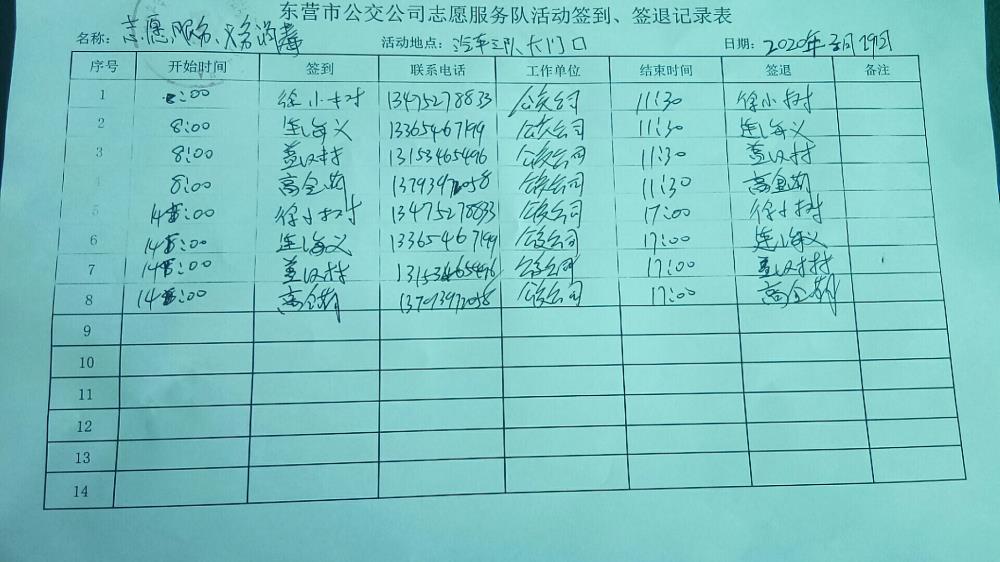 东营市公交公司志愿服务队活动签到、签退记录表
名称：志愿服务、义务消毒 活动地点：汽车三队大门口 日期：2020年3月19日
序号 开始时间 签到 联系电话 工作单位 结束时间 签退 备注
1 8:00 徐小树 13475278833 公交公司 11:30 徐小树
2 8:00 连海义 13365467199 公交公司 11:30 连海义
3 8:00 盖汉村 13153465496 公交公司 11:30 盖汉村
4 8:00 高金莉 13793972058 公交公司 11:30 高金莉
5 14:00 徐小树 13475278833 公交公司 17:00 徐小树
6 14:00 连海义 13365467199 公交公司 17:00 连海义
7 14:00 盖汉村 13153465496 公交公司 17:00 盖汉村
8 14:00 高金莉 13793972058 公交公司 17:00 高金莉
9
10
11
12
13
14